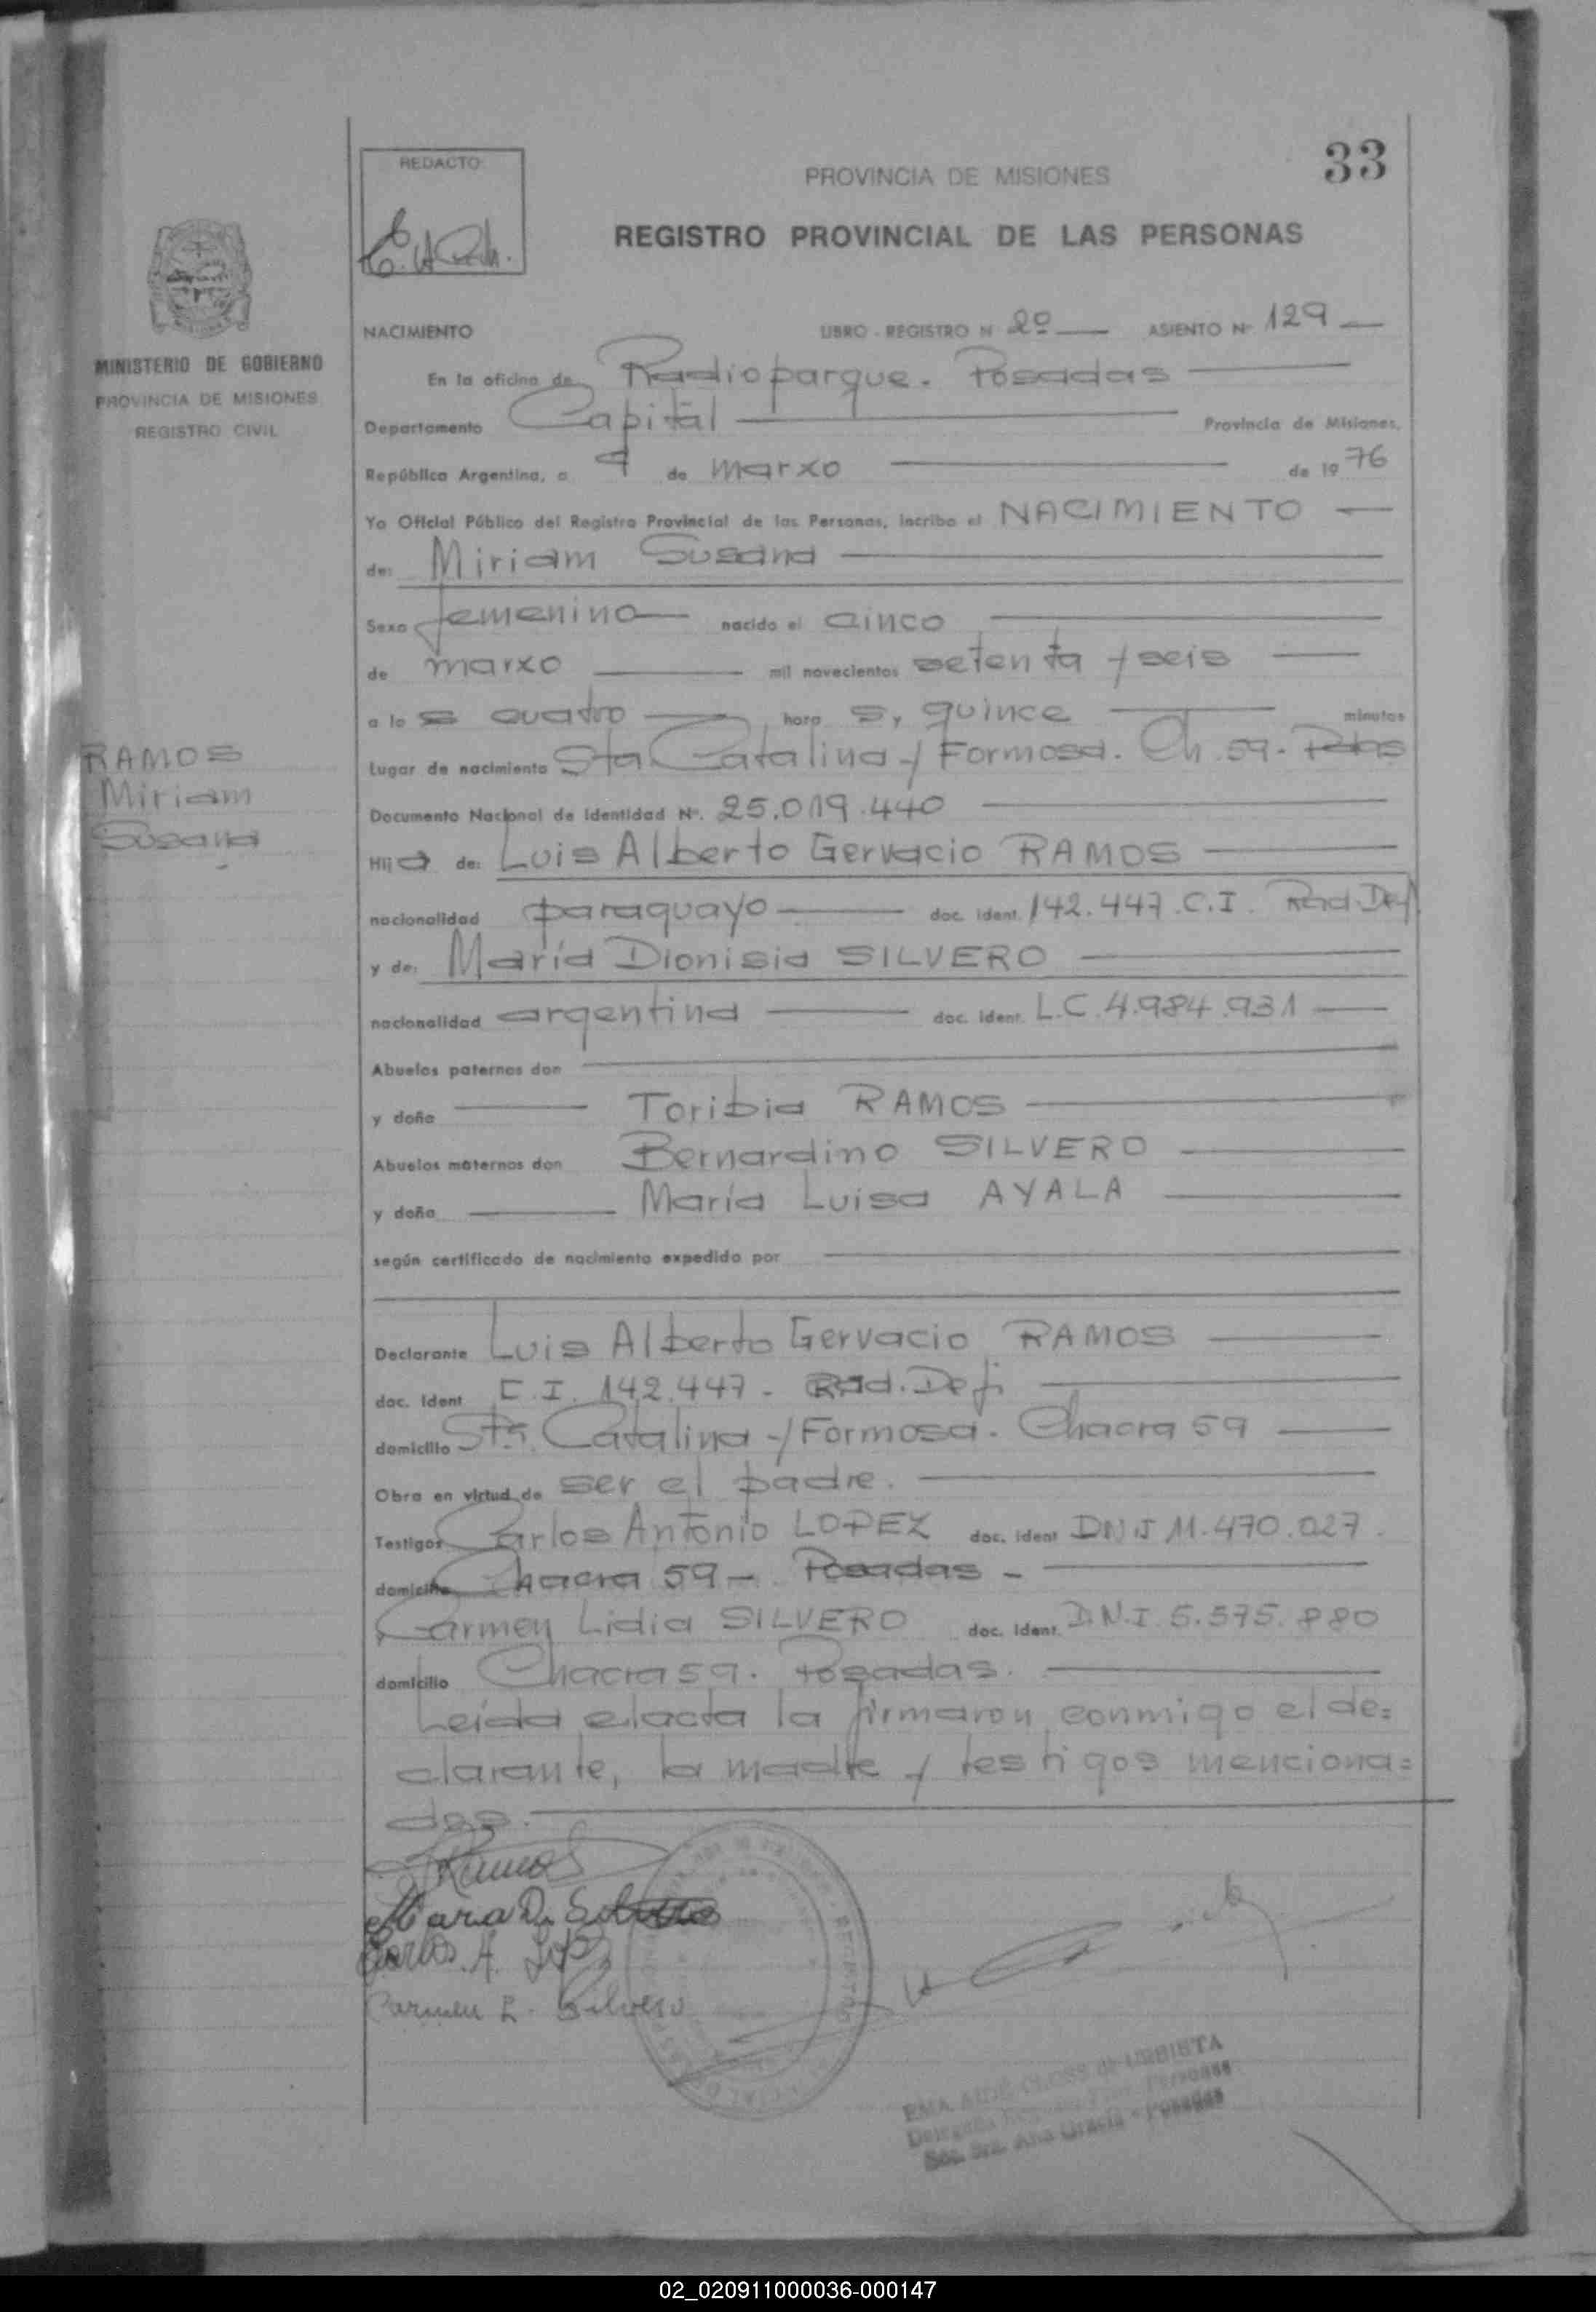 33
REDACTO:
PROVINCIA DE MISIONES
REGISTRO PROVINCIAL DE LAS PERSONAS
MINISTERIO DE GOBIERNO
PROVINCIA DE MISIONES
REGISTRO CIVIL
NACIMIENTO LIBRO - REGISTRO N 2º ASIENTO Nº 129
En la oficina de Radioparque. Posadas
Departamento Capital Provincia de Misiones,
República Argentina, a 9 de marzo de 19 76
Yo Oficial Público del Registro Provincial de las Personas, incribo el NACIMIENTO
de: Miriam Susana
Sexo femenino nacido el cinco
de marzo mil novecientos setenta y seis
a la s cuatro hora s y quince minutos
Lugar de nacimiento Sta Catalina y Formosa. Ch. 59. Pdas
RAMOS
Miriam
Susana
Documento Nacional de Identidad Nº. 25.019.440
Hij a de: Luis Alberto Gervacio RAMOS
nacionalidad paraguayo doc. ident. 142.447.C.I. Rad.Def.
y de: María Dionisia SILVERO
nacionalidad argentina doc. ident. L.C.4.984.931
Abuelos paternos don
y doña Toribia RAMOS
Abuelos maternos don Bernardino SILVERO
y doña María Luisa AYALA
según certificado de nacimiento expedido por
Declarante Luis Alberto Gervacio RAMOS
doc. ident C.I. 142.447 - Rad. Def.
domicilio Sta. Catalina y Formosa. Chacra 59
Obra en virtud de ser el padre.
Testigos Carlos Antonio LOPEZ doc. ident DNI 11.470.027.
domicilio Chacra 59 - Posadas -
Carmen Lidia SILVERO doc. ident. D.N.I. 5.575.880
domicilio Chacra 59. Posadas.
Leída el acta la firmaron conmigo el de=
clarante, la madre y testigos menciona=
dos.
Ramos
Maria D. Silvero
Carlos A. Lopez
Carmen L. Silvero
02_020911000036-000147